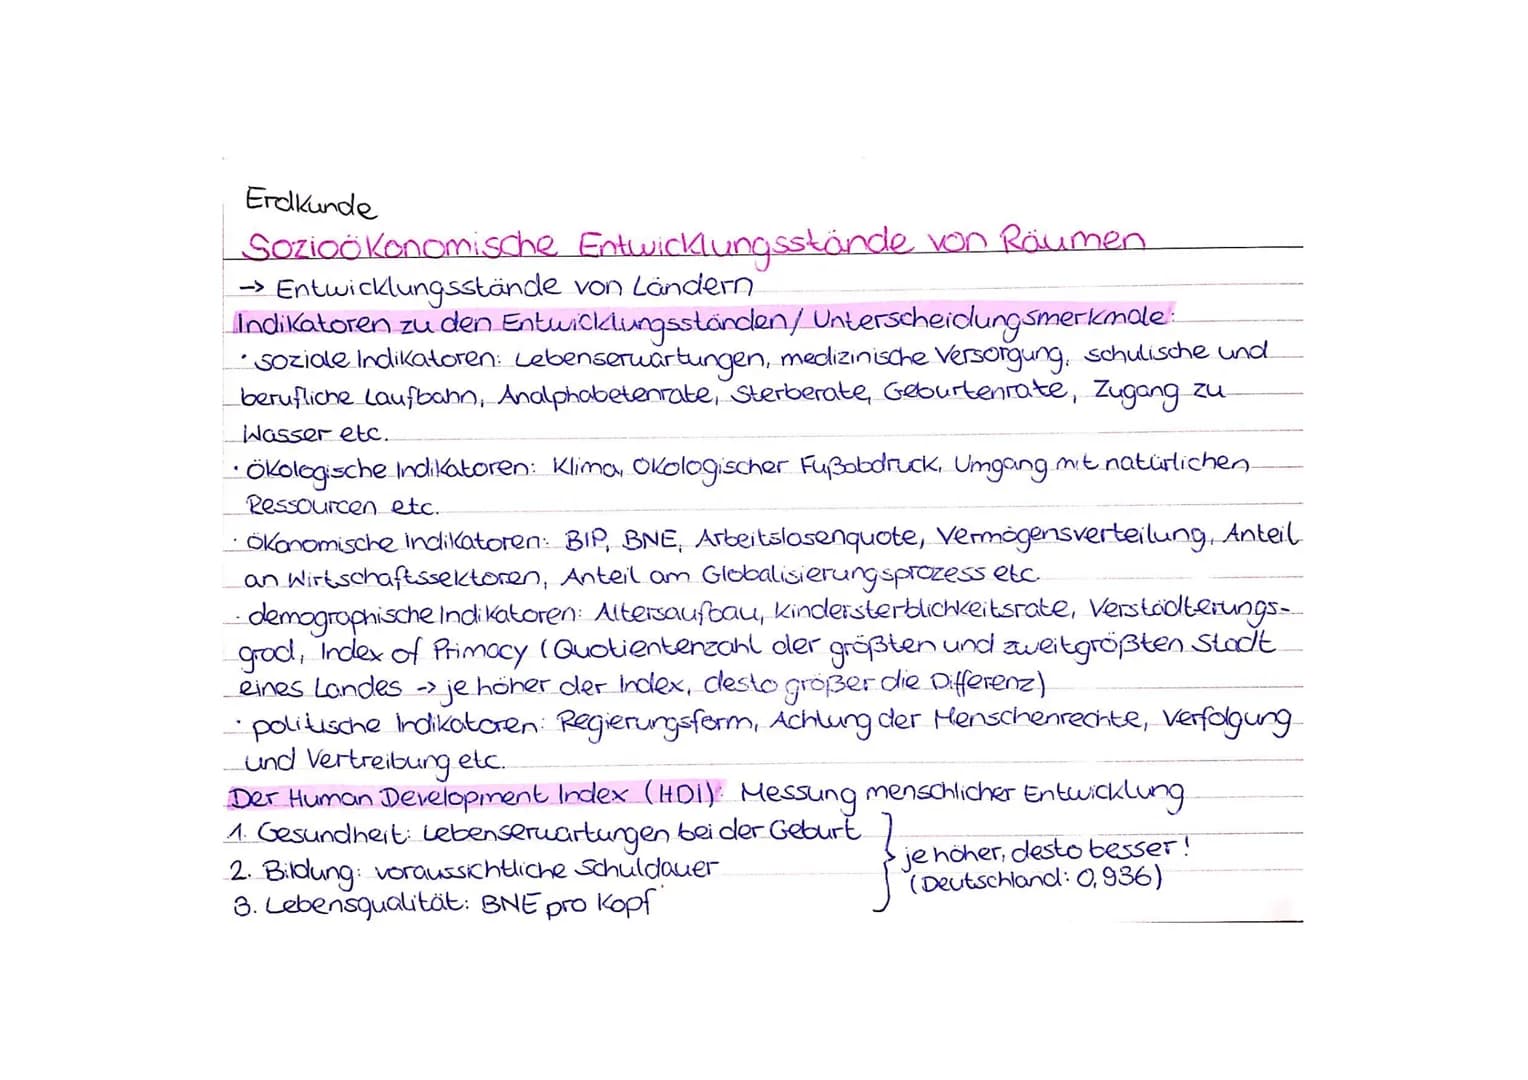 Erdkunde
Sozioökonomische Entwicklungsstände von Räumen
→ Entwicklungsstände von Ländern
Indikatoren zu den Entwicklungsständen/ Unterscheidungsmerkmale:
· soziale Indikatoren: Lebenserwartungen, medizinische Versorgung, schulische und
berufliche Laufbahn, Analphabetenrate, Sterberate, Geburtenrate, Zugang zu
Wasser etc.
· ökologische Indikatoren: Klima, ökologischer Fußabdruck, Umgang mit natürlichen
Ressourcen etc.
· ökonomische Indikatoren: BIP, BNE, Arbeitslosenquote, Vermögensverteilung, Anteil
an Wirtschaftssektoren, Anteil am Globalisierungsprozess etc.
· demographische Indikatoren: Altersaufbau, Kindersterblichkeitsrate, Verstädterungs-
grad, Index of Primacy (Quotientenzahl der größten und zweitgrößten Stadt
eines Landes → je höher der Index, desto größer die Differenz)
· politische Indikatoren: Regierungsform, Achtung der Menschenrechte, Verfolgung
und Vertreibung etc.
Der Human Development Index (HDI): Messung menschlicher Entwicklung
1. Gesundheit: Lebenserwartungen bei der Geburt
2. Bildung: voraussichtliche Schuldauer
3. Lebensqualität: BNE pro Kopf
je höher, desto besser!
(Deutschland: 0,936)